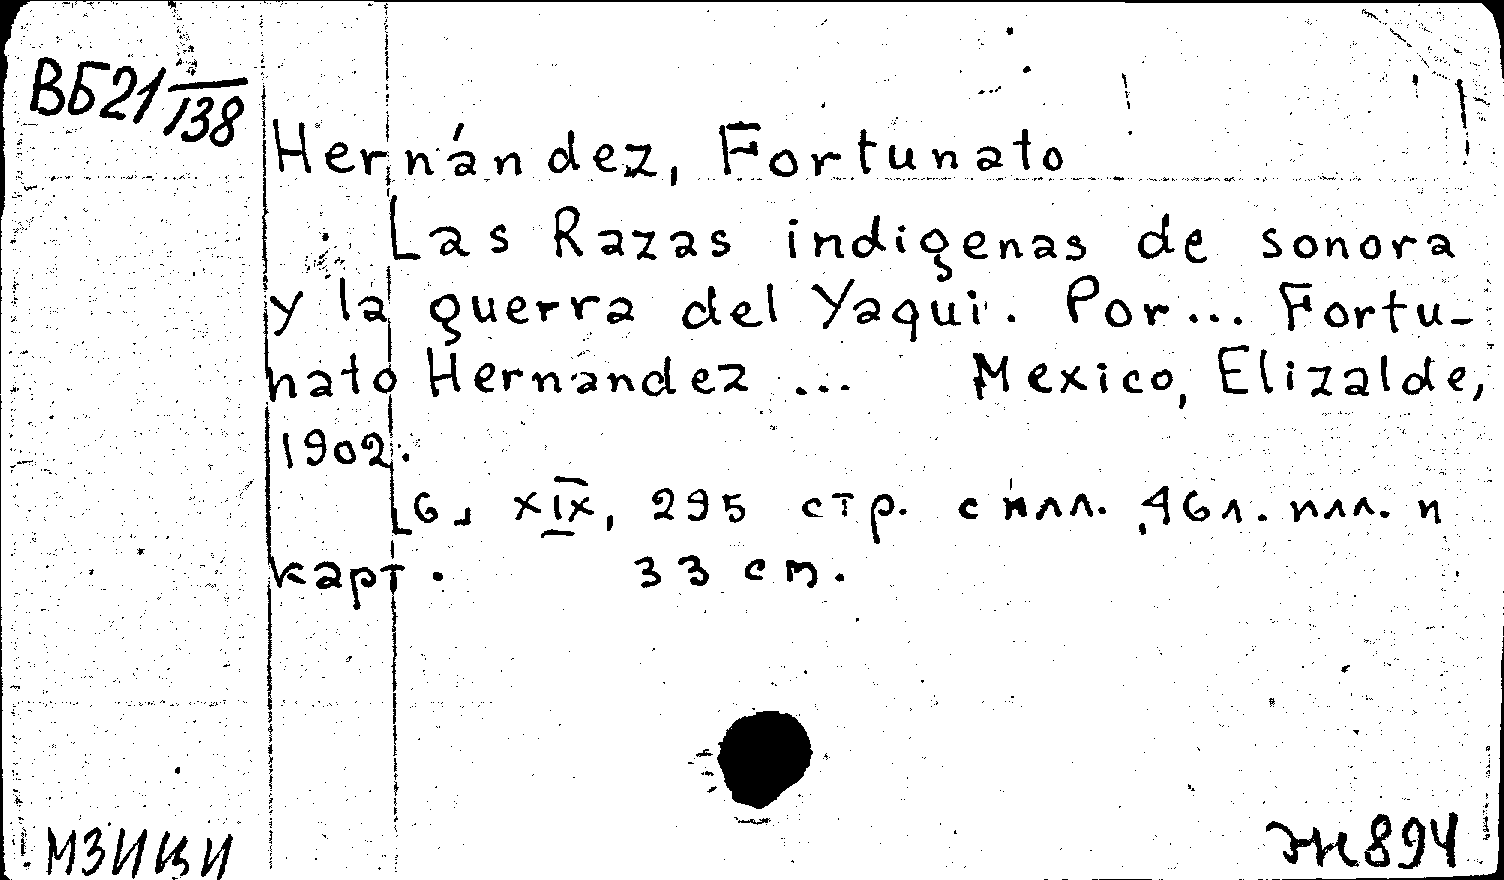 ВБ21/138
Hernández, Fortunato
Las Razas indigenas de sonora
y la guerra del Yaqui. Por... Fortu-
nato Hernandez ... Mexico, Elizalde,
1902.
[6] XIX, 295 стр. с илл. 46 л. илл. и
карт. 33 cm.
Ж894